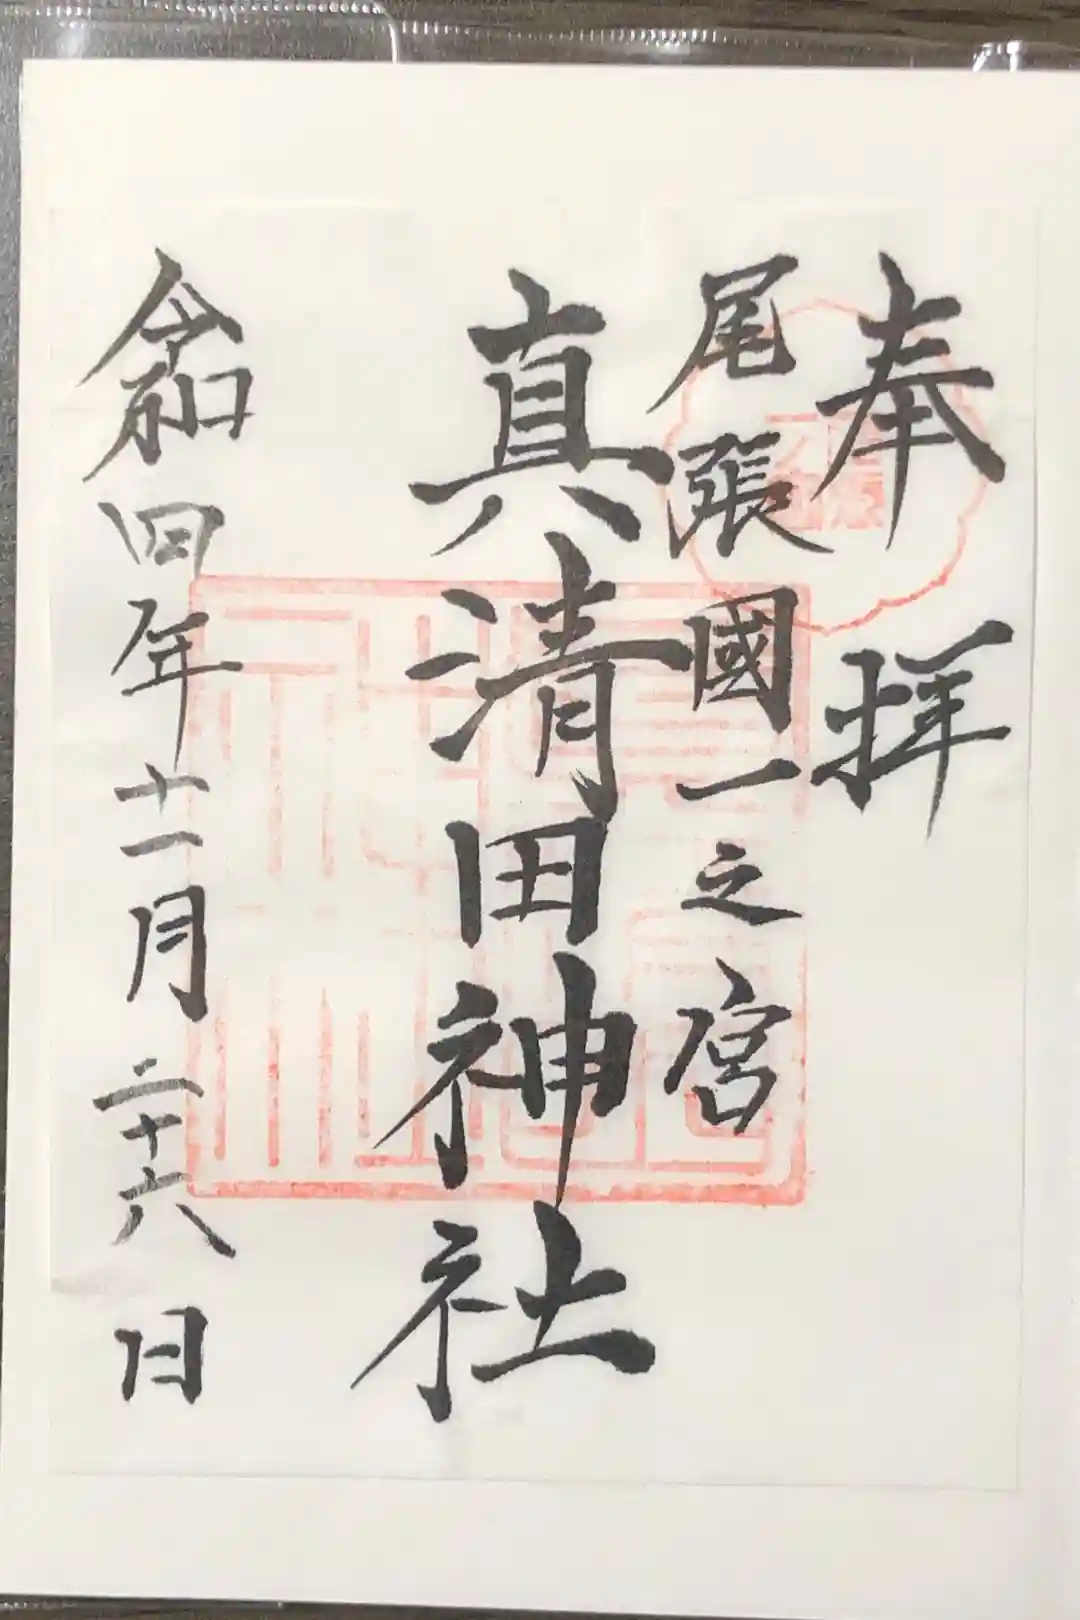 奉拝
尾張國一之宮
真清田神社
令和四年十一月二十六日